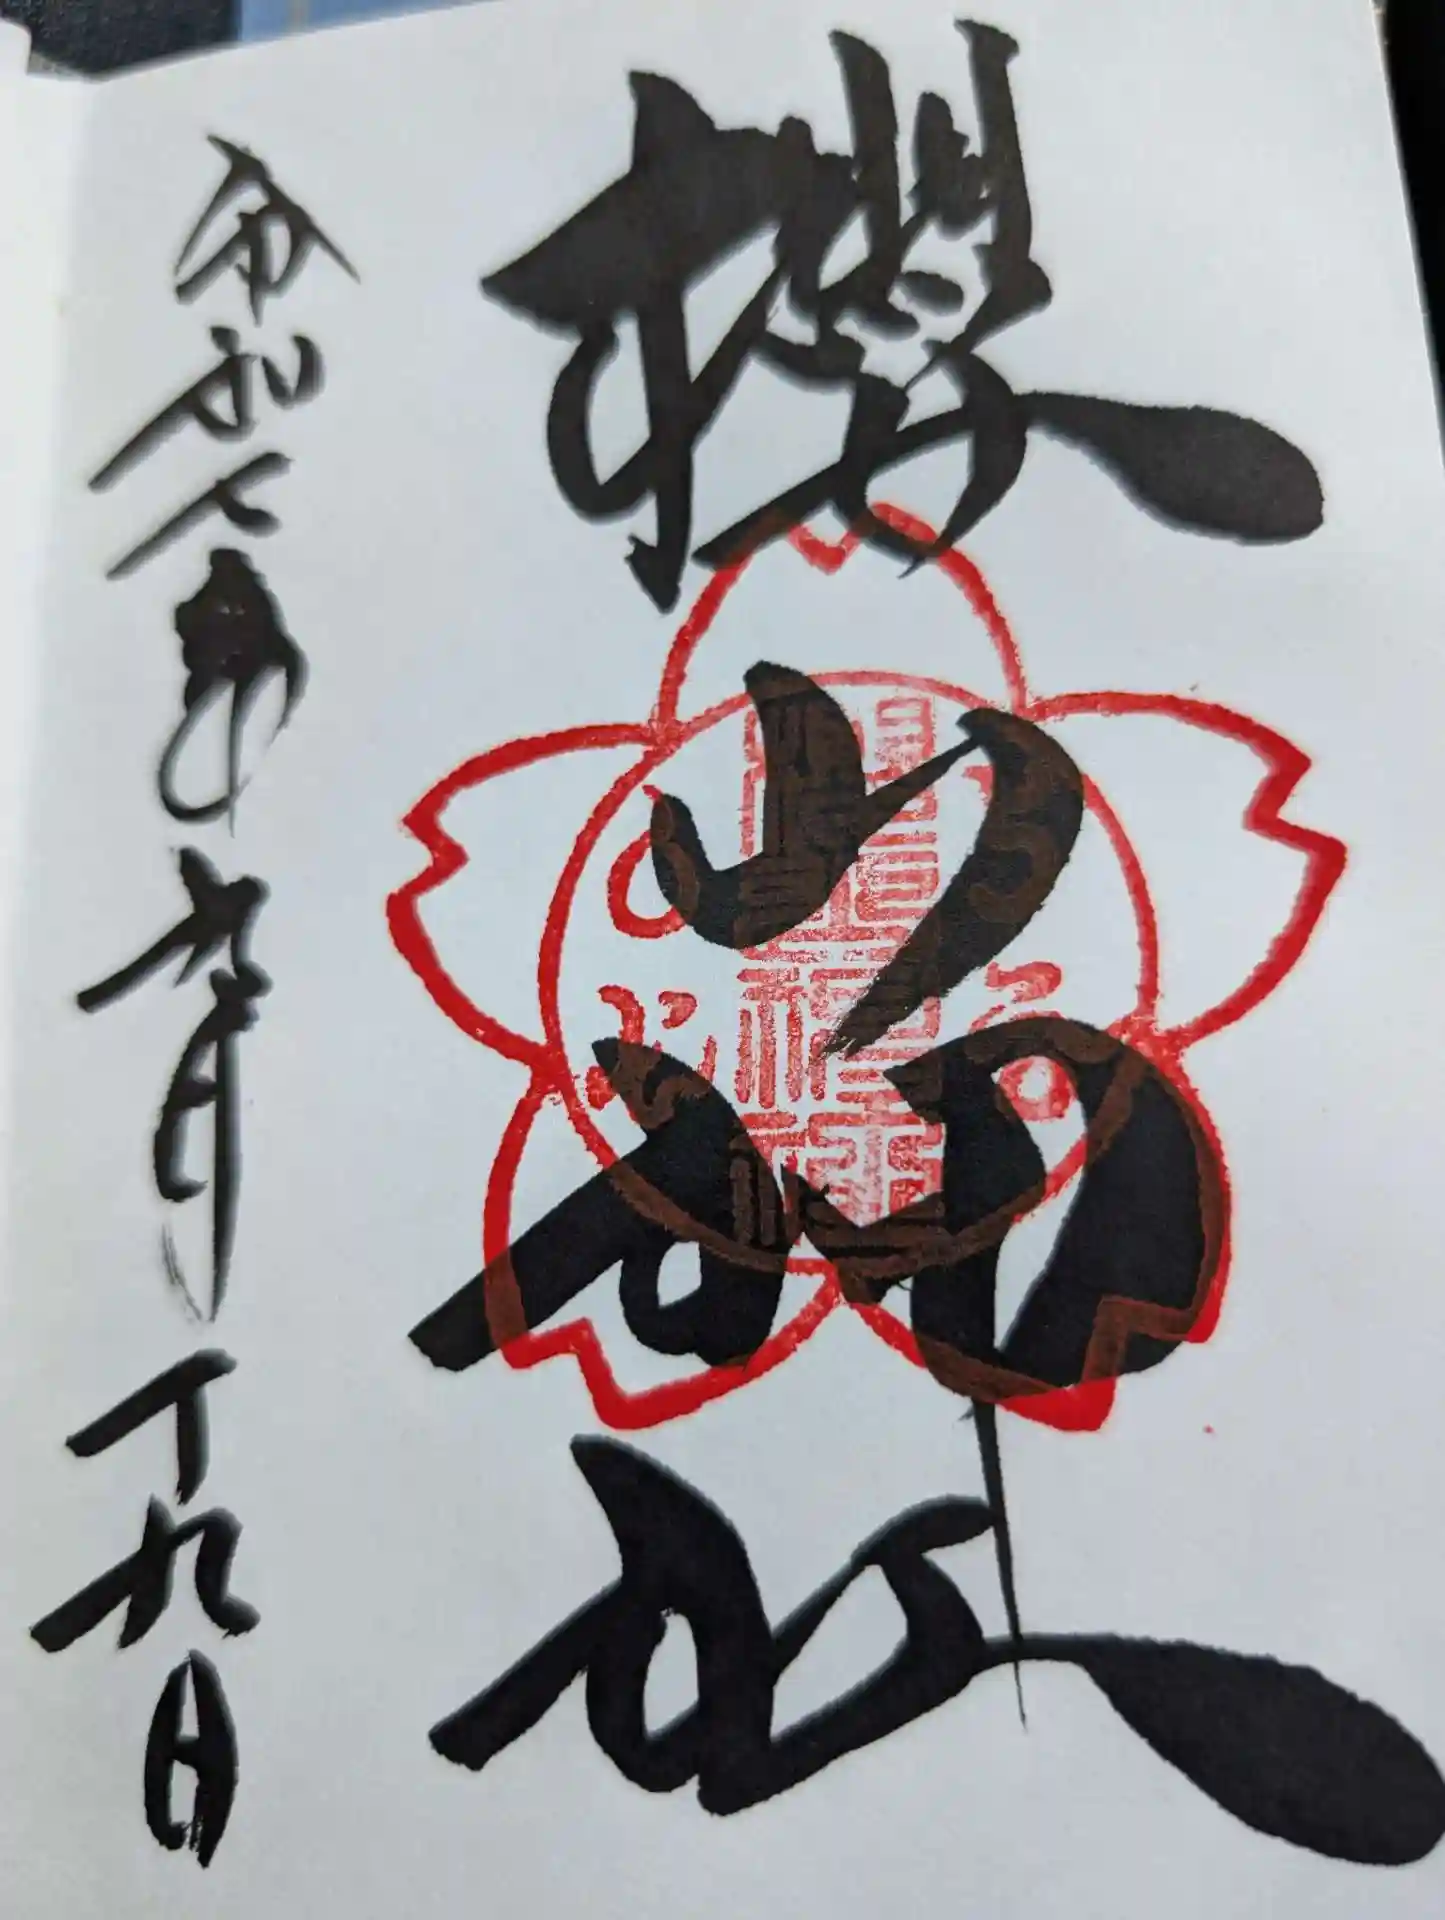 櫻
山
神
社
令和七年九月十九日